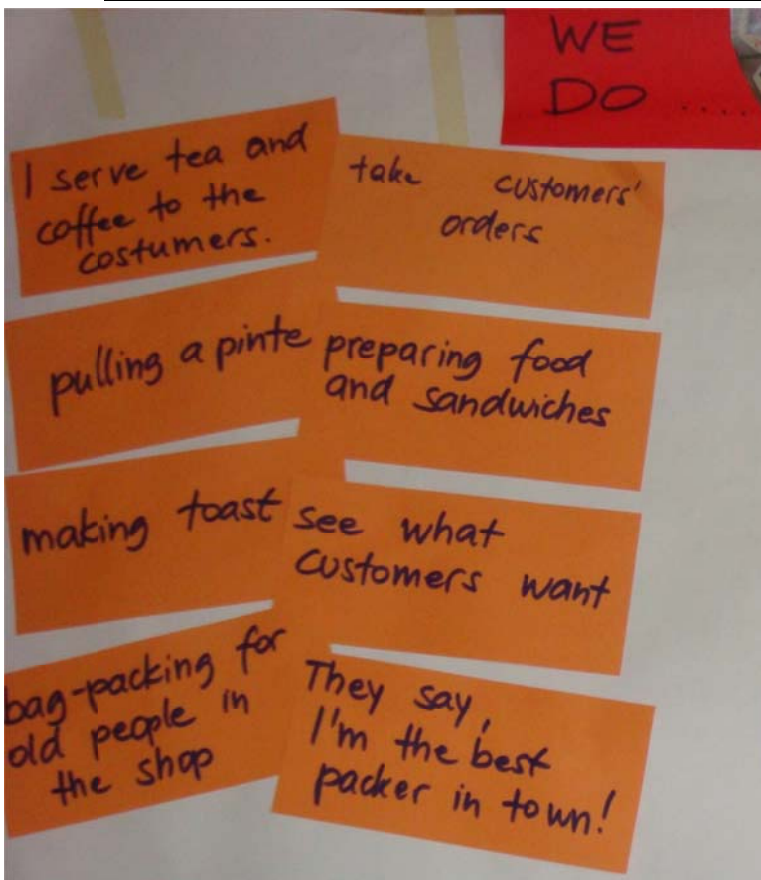 WE
DO .....
I serve tea and
coffee to the
costumers.
take customers'
orders
pulling a pinte
preparing food
and sandwiches
making toast
see what
customers want
bag-packing for
old people in
the shop
They say,
I'm the best
packer in town!